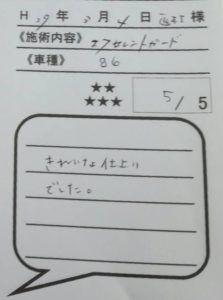 H 29年3月4日 様
《施術内容》エクセレントガード
《車種》 86
★★
★★★ 5/5
きれいな仕上り
でした。